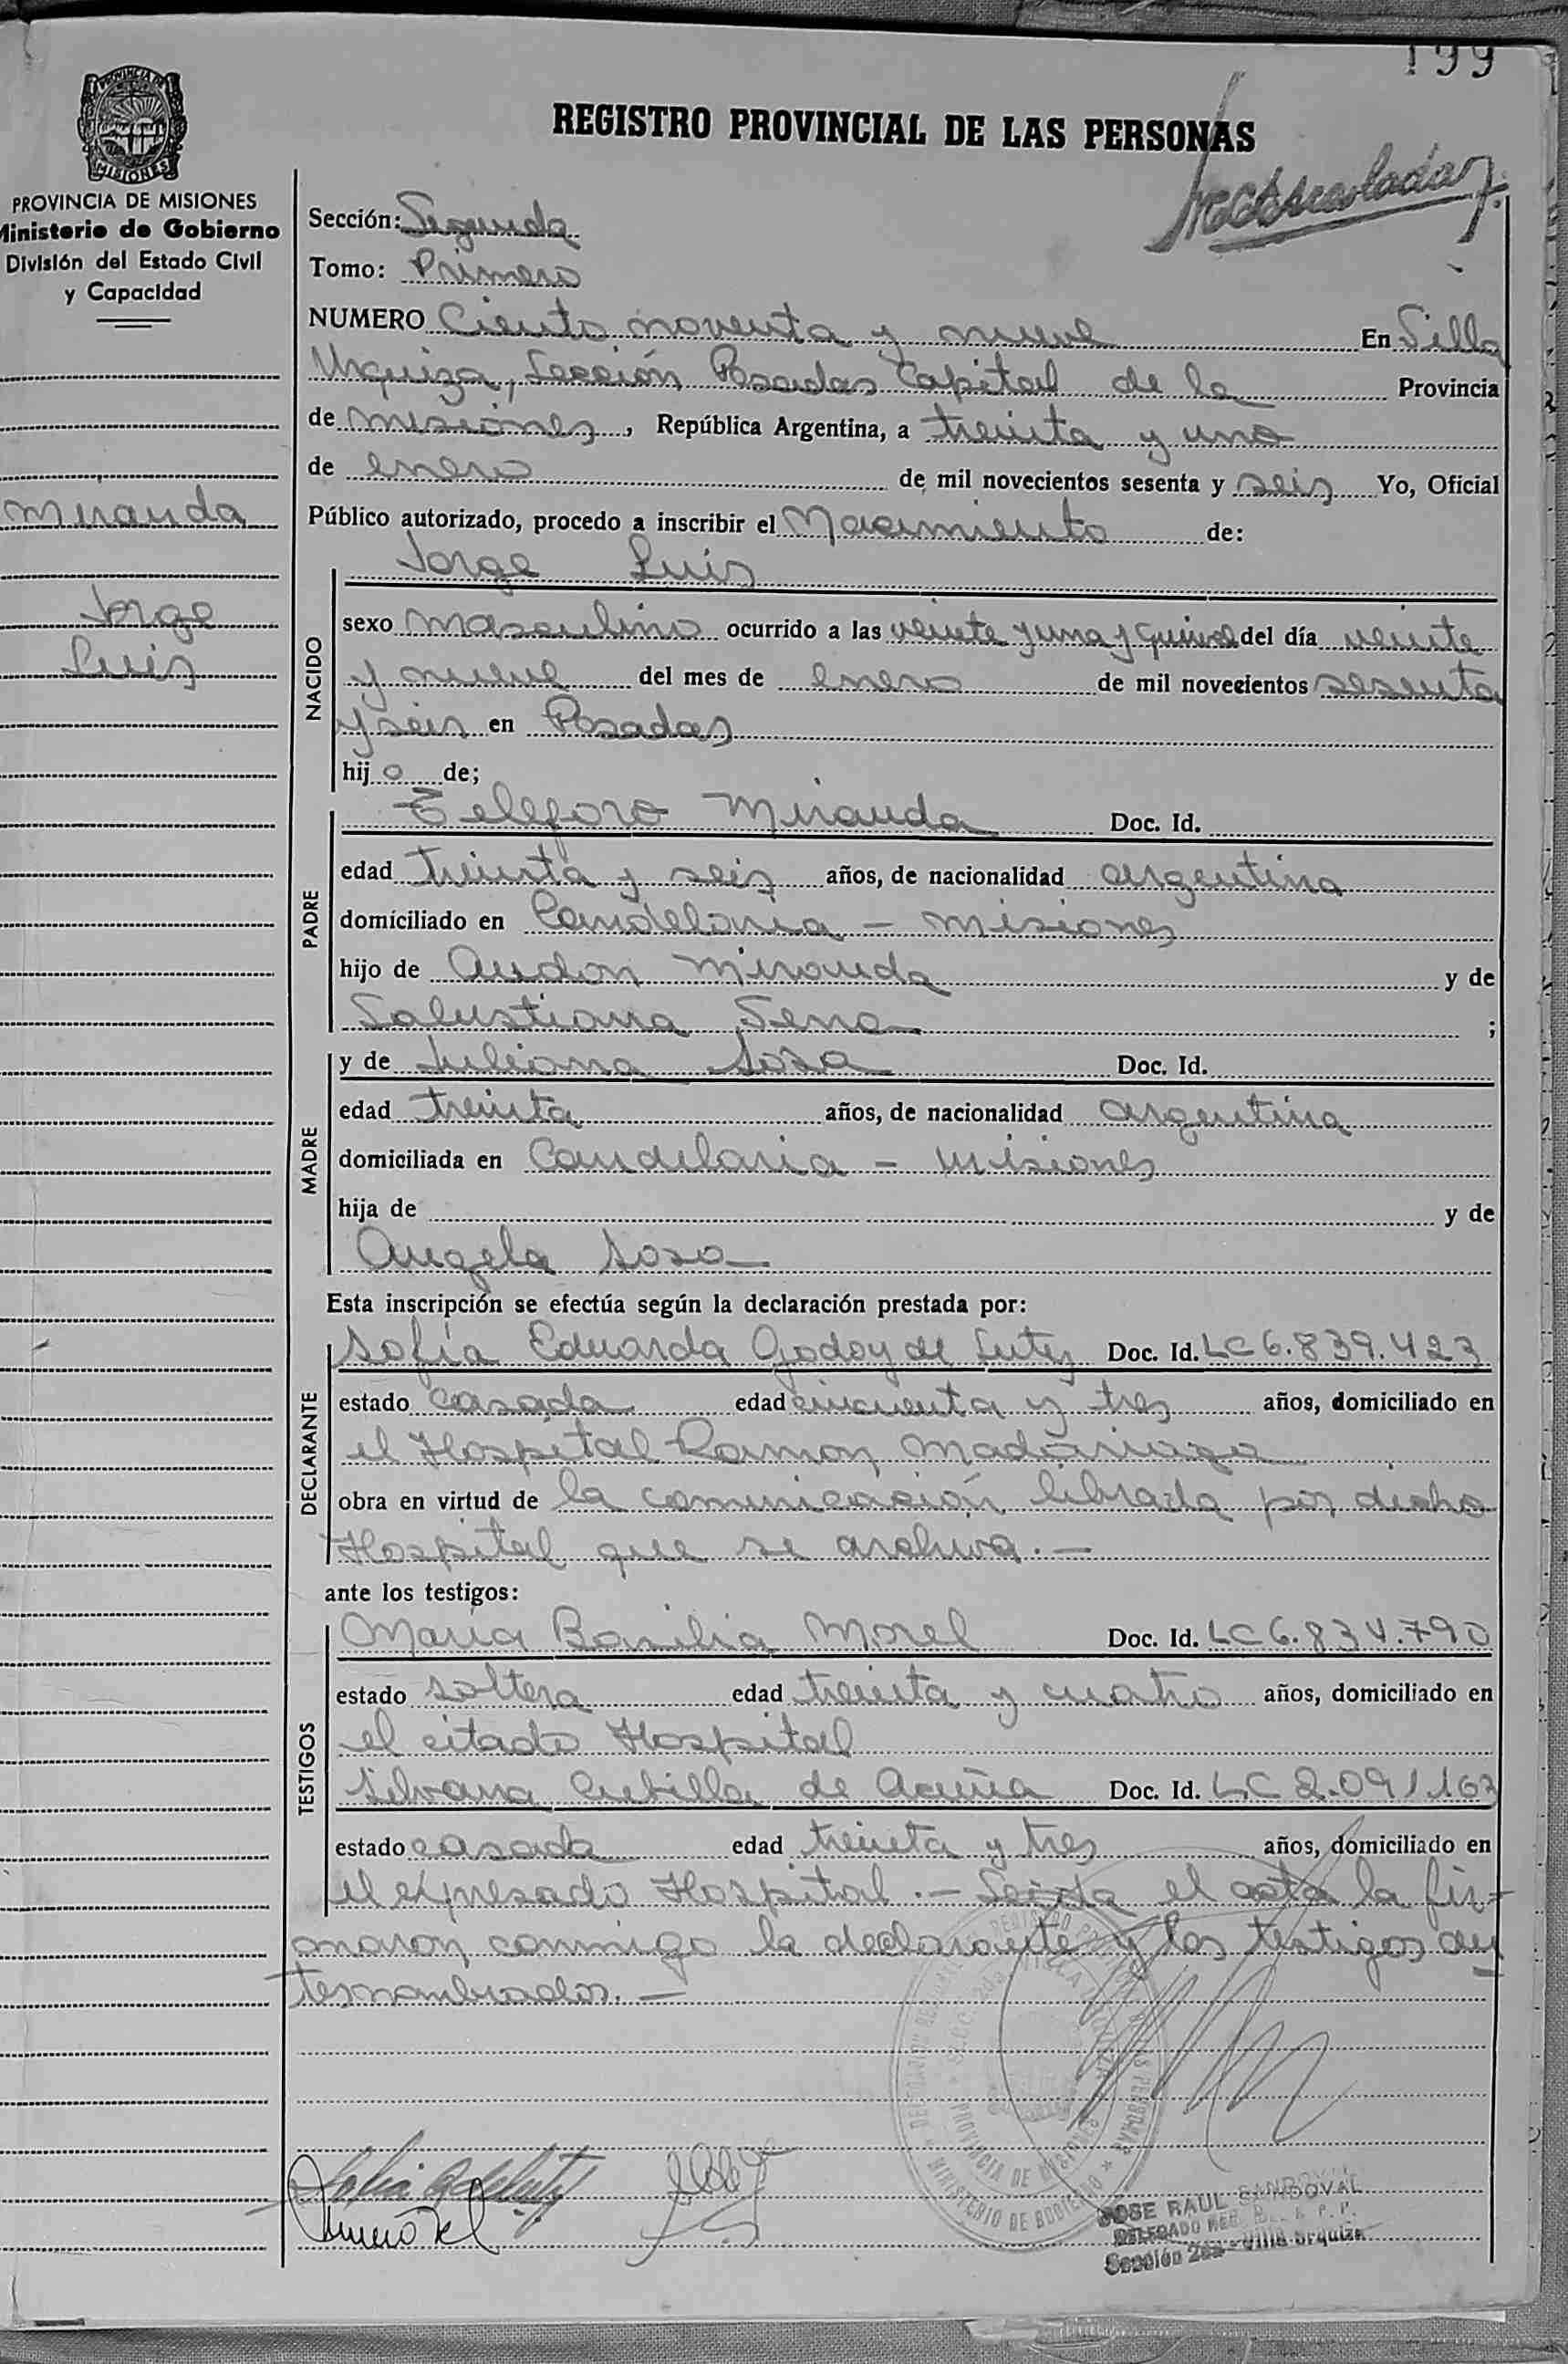 199
PROVINCIA DE MISIONES
Ministerio de Gobierno
División del Estado Civil
y Capacidad
REGISTRO PROVINCIAL DE LAS PERSONAS
Sección: Segunda
Tomo: Primero
NUMERO Ciento noventa y nueve En Villa
Urquiza, Sección Posadas Capital de la Provincia
de misiones, República Argentina, a treinta y uno
de enero de mil novecientos sesenta y seis Yo, Oficial
Público autorizado, procedo a inscribir el Nacimiento de:
Miranda
Jorge
Luis
Jorge Luis
NACIDO
sexo masculino ocurrido a las veinte y una y quince del día veinte
y nueve del mes de enero de mil novecientos sesenta
y seis en Posadas
hijo de;
PADRE
Telesforo Miranda Doc. Id.
edad treinta y seis años, de nacionalidad argentina
domiciliado en Candelaria - misiones
hijo de Audon Miranda y de
Salustiana Sena ;
MADRE
y de Juliana Sosa Doc. Id.
edad treinta años, de nacionalidad argentina
domiciliada en Candelaria - misiones
hija de y de
Angela Sosa
Esta inscripción se efectúa según la declaración prestada por:
DECLARANTE
Sofía Eduarda Godoy de Doc. Id. LC 6.839.423
estado casada edad cincuenta y tres años, domiciliado en
el Hospital Ramon Madariaga
obra en virtud de la comunicación librada por dicho
Hospital que se archiva.-
ante los testigos:
TESTIGOS
Maria Basilia Morel Doc. Id. LC 6.834.790
estado soltera edad treinta y cuatro años, domiciliado en
el citado Hospital
Silvana Cubilla de Acuña Doc. Id. LC 2.091.163
estado casada edad treinta y tres años, domiciliado en
el expresado Hospital.- Leida el acta la fir-
maron conmigo la declarante y los testigos an
tesnombrados.-
JOSE RAUL SANDOVAL
Sección 2da - Villa Urquiza